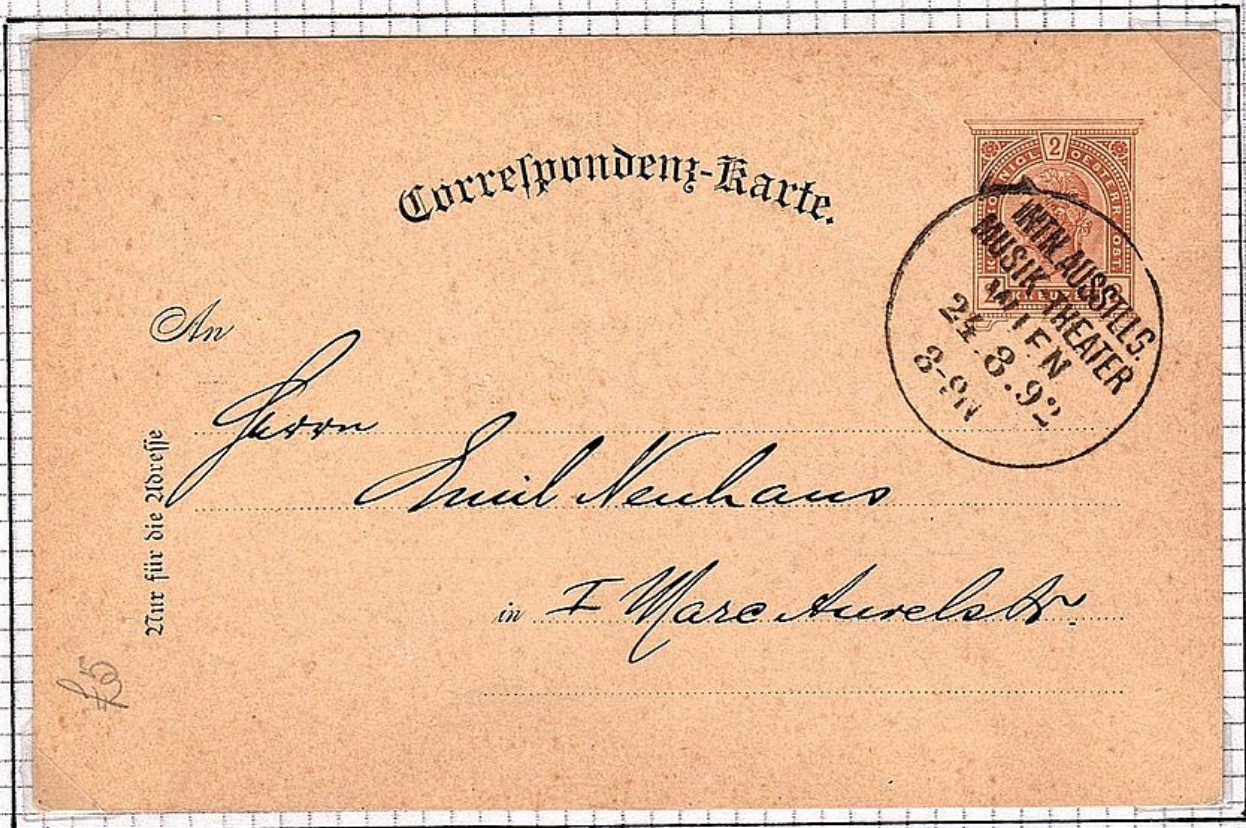 Correspondenz-Karte.
2
KAIS. KÖNIGL. OESTERR. POST
INTN. AUSSTLLS.
MUSIK-THEATER
WIEN
24.8.92
8-9N
An
Herrn
Emil Neuhaus
in I Marc Aurelstr.
Nur für die Adresse
£5